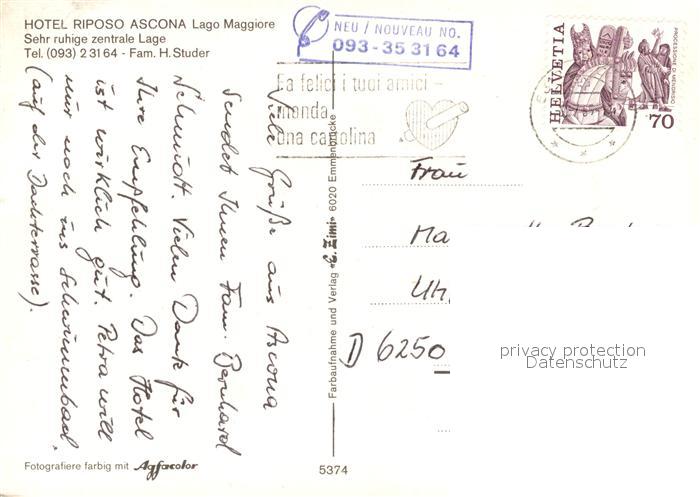 HOTEL RIPOSO ASCONA Lago Maggiore
Sehr ruhige zentrale Lage
Tel. (093) 2 31 64 - Fam. H. Studer
NEU / NOUVEAU NO.
093-35 31 64
Fa felici i tuoi amici –
manda
una cartolina
HELVETIA
PROCESSIONE DI MENDRISIO
70
Viele Grüße aus Ascona
sendet Ihnen Fam. Bernhard
Schmidt. Vielen Dank für
Ihre Empfehlung. Das Hotel
ist wirklich gut. Petra will
nur noch ins Schwimmbad.
(auf der Dachterrasse).
Farbaufnahme und Verlag «E. Zimi» 6020 Emmenbrücke
Frau
Ma
Uh
D 6250
privacy protection
Datenschutz
Fotografiere farbig mit Agfacolor
5374